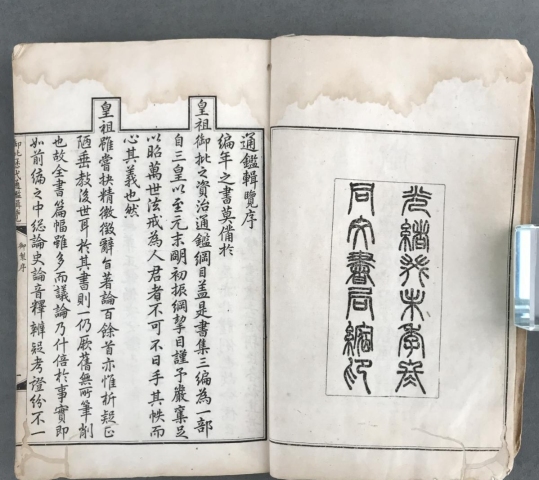 光緒癸未季
同文書局縮印
通鑑輯覽序
編年之書莫備於
皇祖御批之資治通鑑綱目蓋是書集三編為一部
自三皇以至元末明初振綱挈目謹予嚴棄足
以昭萬世法戒為人君者不可不日手其帙而
心其義也然
皇祖雖嘗抉精微徵辭旨著論百餘首亦惟析疑正
陋垂教後世耳於其書則一仍厥舊無所筆削
也故全書篇幅雖多而議論乃什倍於事實即
如前編之中總論史論音釋辨疑考證紛不一
御批歷代通鑑輯覽 御製序 一